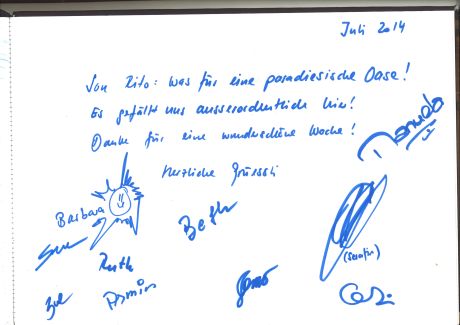 Juli 2014
San Zito: Was für eine paradiesische Oase!
Es gefällt uns ausserordentlich hier!
Danke für eine wunderschöne Woche!
Herzliche Grüessli
Manuela
Barbara
Ruth
(Serafin)